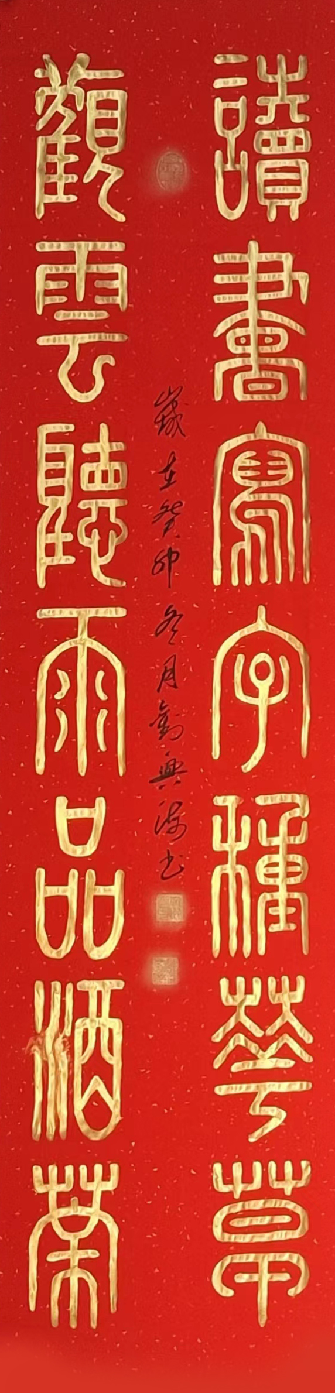 讀書寫字種華草
觀雲聽雨品酒茶
歲在癸卯冬月劉興書